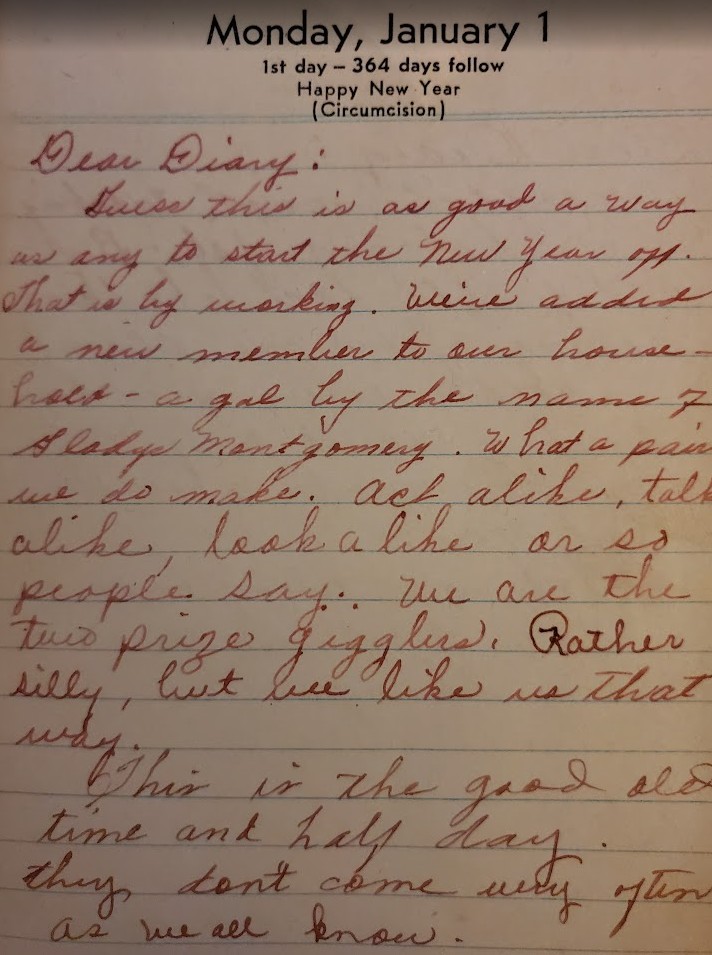 Monday, January 1
1st day – 364 days follow
Happy New Year
(Circumcision)
Dear Diary:
Guess this is as good a way
as any to start the New Year off.
That is by working. We've added
a new member to our house-
hold - a gal by the name of
Gladys Montgomery. What a pair
we do make. Act alike, talk
alike, look alike or so
people say. We are the
two prize gigglers. Rather
silly, but we like us that
way.
This is the good old
time and half day.
they don't come very often
as we all know.